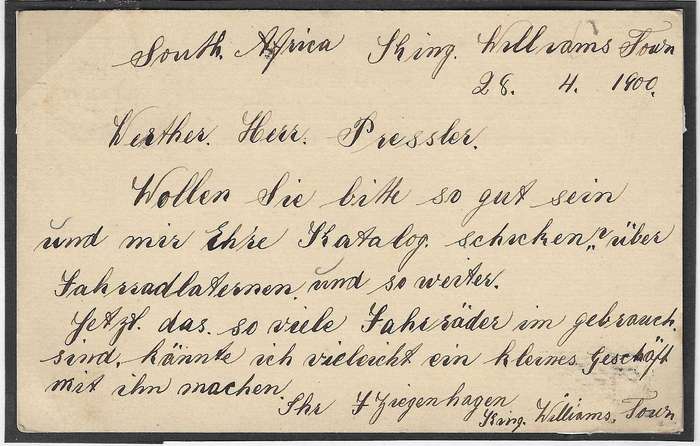 South. Africa King. Williams Town
28. 4. 1900.
Werther. Herr. Pressler.
Wollen Sie bitte so gut sein
und mir Ehre Katalog. schicken „ über
Fahrradlaternen und so weiter.
Jetzt. das. so viele Fahrräder im gebrauch.
sind. könnte ich vieleicht ein kleines Geschäft
mit ihn machen
Ihr F Ziegenhagen
King. Williams. Town